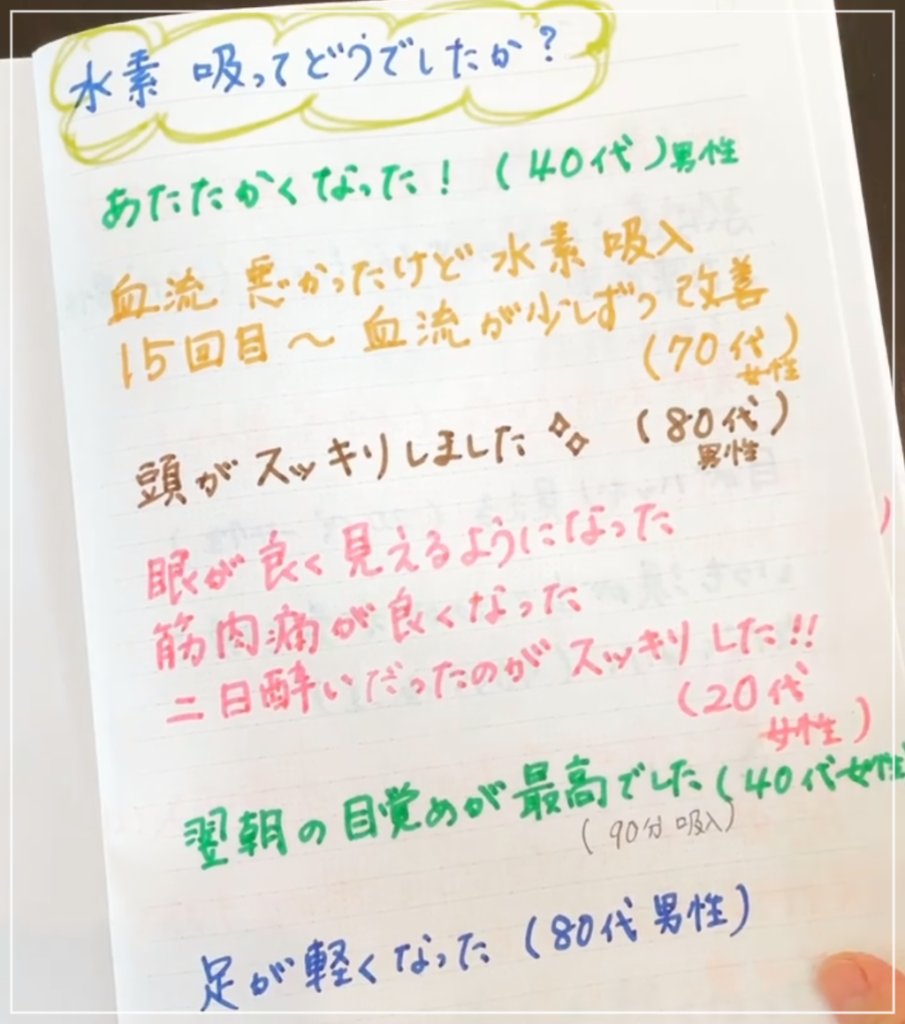 水素 吸ってどうでしたか?
あたたかくなった! (40代)男性
血流 悪かったけど 水素 吸入
15回目〜 血流が少しずつ 改善
(70代)
女性
頭がスッキリしました (80代)
男性
眼が良く見えるようになった
筋肉痛が良くなった
二日酔いだったのがスッキリした!!
(20代
女性)
翌朝の目覚めが最高でした(40代女性
(90分吸入)
足が軽くなった (80代 男性)